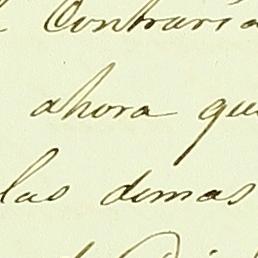 Contraria
ahora que
las demas